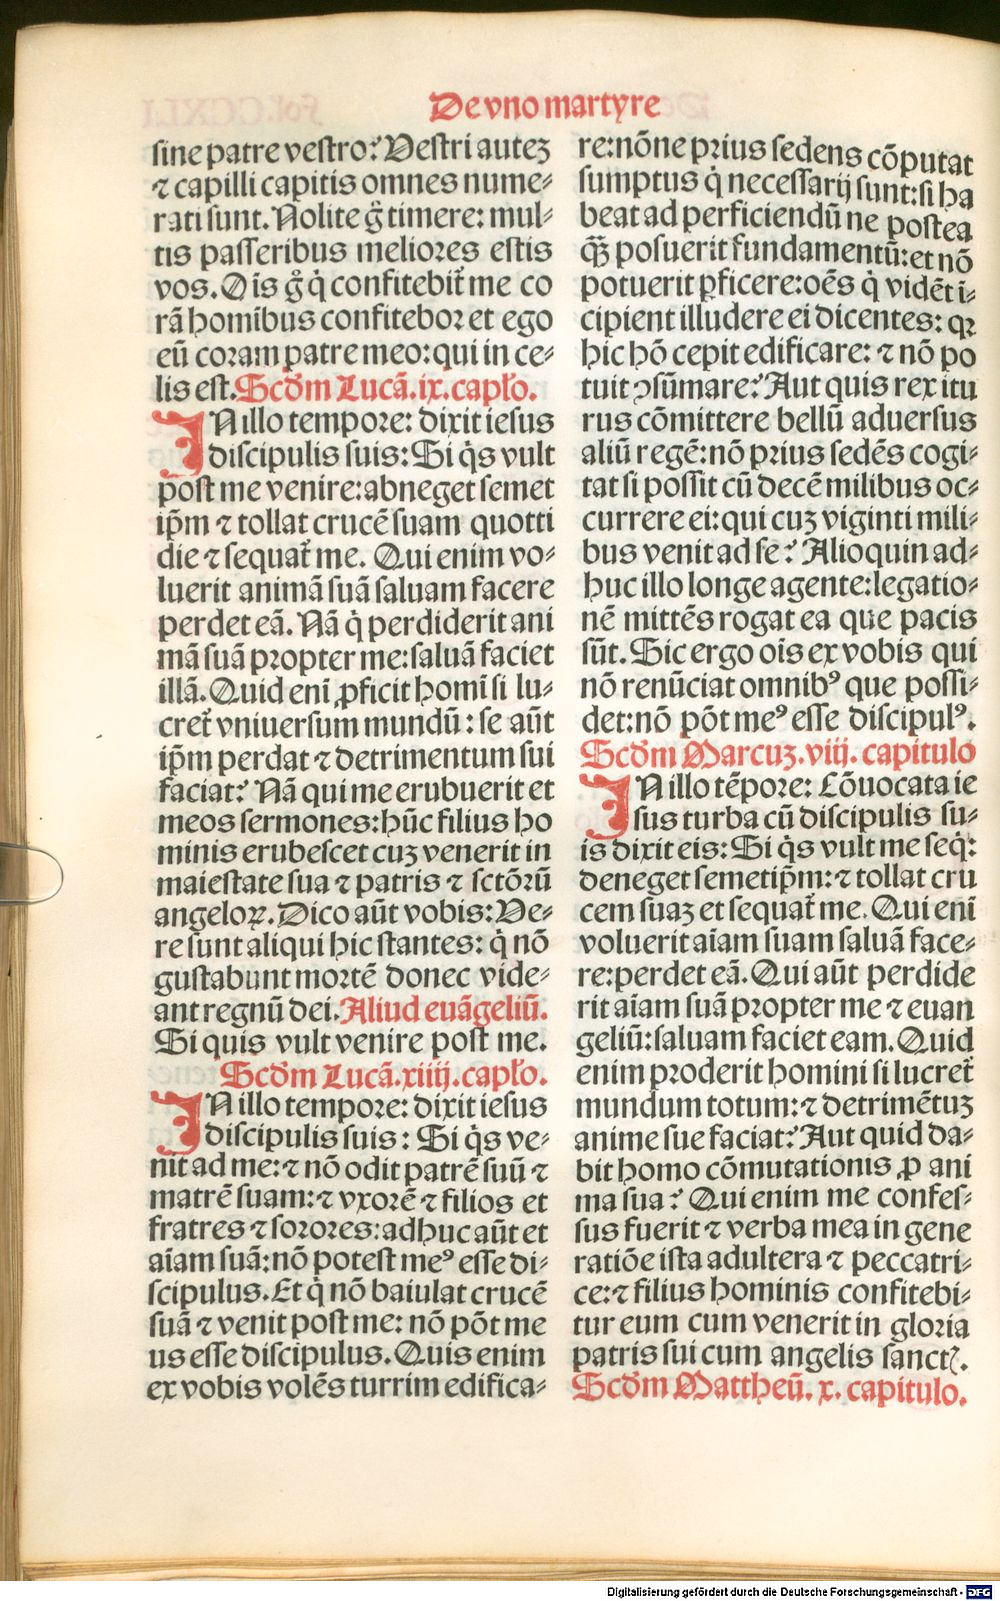 De vno martyre
sine patre vestro? Vestri autez
⁊ capilli capitis omnes nume⸗
rati sunt. Nolite g̃ timere: mul⸗
tis passeribus meliores estis
vos. Oĩs g̊ q̇ confitebit᷑ me co
rã homĩbus confitebor et ego
eũ coram patre meo: qui in ce⸗
lis est. Scd̃m Lucã. ix. capło.
IN illo tempore: dixit iesus
discipulis suis: Si q̇s vult
post me venire: abneget semet
ip̃m ⁊ tollat crucẽ suam quotti
die ⁊ sequat᷑ me. Qui enim vo⸗
luerit animã suã saluam facere
perdet eã. Nã q̇ perdiderit ani
mã suã propter me: saluã faciet
illã. Quid eni ꝓficit homĩ si lu⸗
cret᷑ vniuersum mundũ: se aũt
ip̃m perdat ⁊ detrimentum sui
faciat? Nã qui me erubuerit et
meos sermones: hũc filius ho
minis erubescet cuz venerit in
maiestate sua ⁊ patris ⁊ sctõrũ
angeloꝝ. Dico aũt vobis: Ve⸗
re sunt aliqui hic stantes: q̇ nõ
gustabunt mortẽ donec vide⸗
ant regnũ dei. Aliud euãgeliũ.
Si quis vult venire post me.
Scd̃m Lucã. xiiij. capło.
IN illo tempore: dixit iesus
discipulis suis: Si q̇s ve⸗
nit ad me: ⁊ nõ odit patrẽ suũ ⁊
matrẽ suam: ⁊ vxorẽ ⁊ filios et
fratres ⁊ sorores: adhuc aũt et
aĩam suã: nõ potest meꝰ esse di⸗
scipulus. Et q̇ nõ baiulat crucẽ
suã ⁊ venit post me: nõ põt me
us esse discipulus. Quis enim
ex vobis volẽs turrim edifica⸗
re: nõne prius sedens cõputat
sumptus q̇ necessarij sunt: si ha
beat ad perficiendũ ne postea
q̃ꝫ posuerit fundamentũ: et nõ
potuerit ꝑficere: oẽs q̇ vidẽt ĩ⸗
cipient illudere ei dicentes: qꝛ
hic hõ cepit edificare: ⁊ nõ po
tuit ꝯsũmare? Aut quis rex itu
rus cõmittere bellũ aduersus
aliũ regẽ: nõ prius sedẽs cogi⸗
tat si possit cũ decẽ milibus oc⸗
currere ei: qui cuz viginti mili⸗
bus venit ad se? Alioquin ad⸗
huc illo longe agente: legatio⸗
nẽ mittẽs rogat ea que pacis
sũt. Sic ergo oĩs ex vobis qui
nõ renũciat omnibꝰ que possi⸗
det: nõ põt meꝰ esse discipulꝰ.
Scd̃m Marcuz. viij. capitulo
IN illo tẽpore: Cõuocata ie
sus turba cũ discipulis su⸗
is dixit eis: Si q̇s vult me seq̇:
deneget semetip̃m: ⁊ tollat cru
cem suaz et sequat᷑ me. Qui eni
voluerit aĩam suam saluã face⸗
re: perdet eã. Qui aũt perdide
rit aĩam suã propter me ⁊ euan
geliũ: saluam faciet eam. Quid
enim proderit homini si lucret᷑
mundum totum: ⁊ detrimẽtuz
anime sue faciat? Aut quid da⸗
bit homo cõmutationis ꝓ ani
ma sua? Qui enim me confes⸗
sus fuerit ⁊ verba mea in gene
ratiõe ista adultera ⁊ peccatri⸗
ce: ⁊ filius hominis confitebi⸗
tur eum cum venerit in gloria
patris sui cum angelis sanctꝭ.
Scd̃m Mattheũ. x. capitulo.
Digitalisierung gefördert durch die Deutsche Forschungsgemeinschaft - DFG